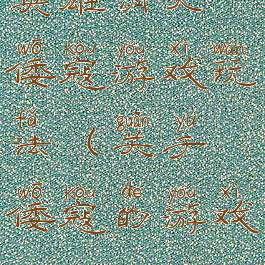 英雄
wō kòu yóu xì wán
倭寇游戏玩
fǎ guān yú
法(关于
wō kòu de yóu xì
倭寇的游戏